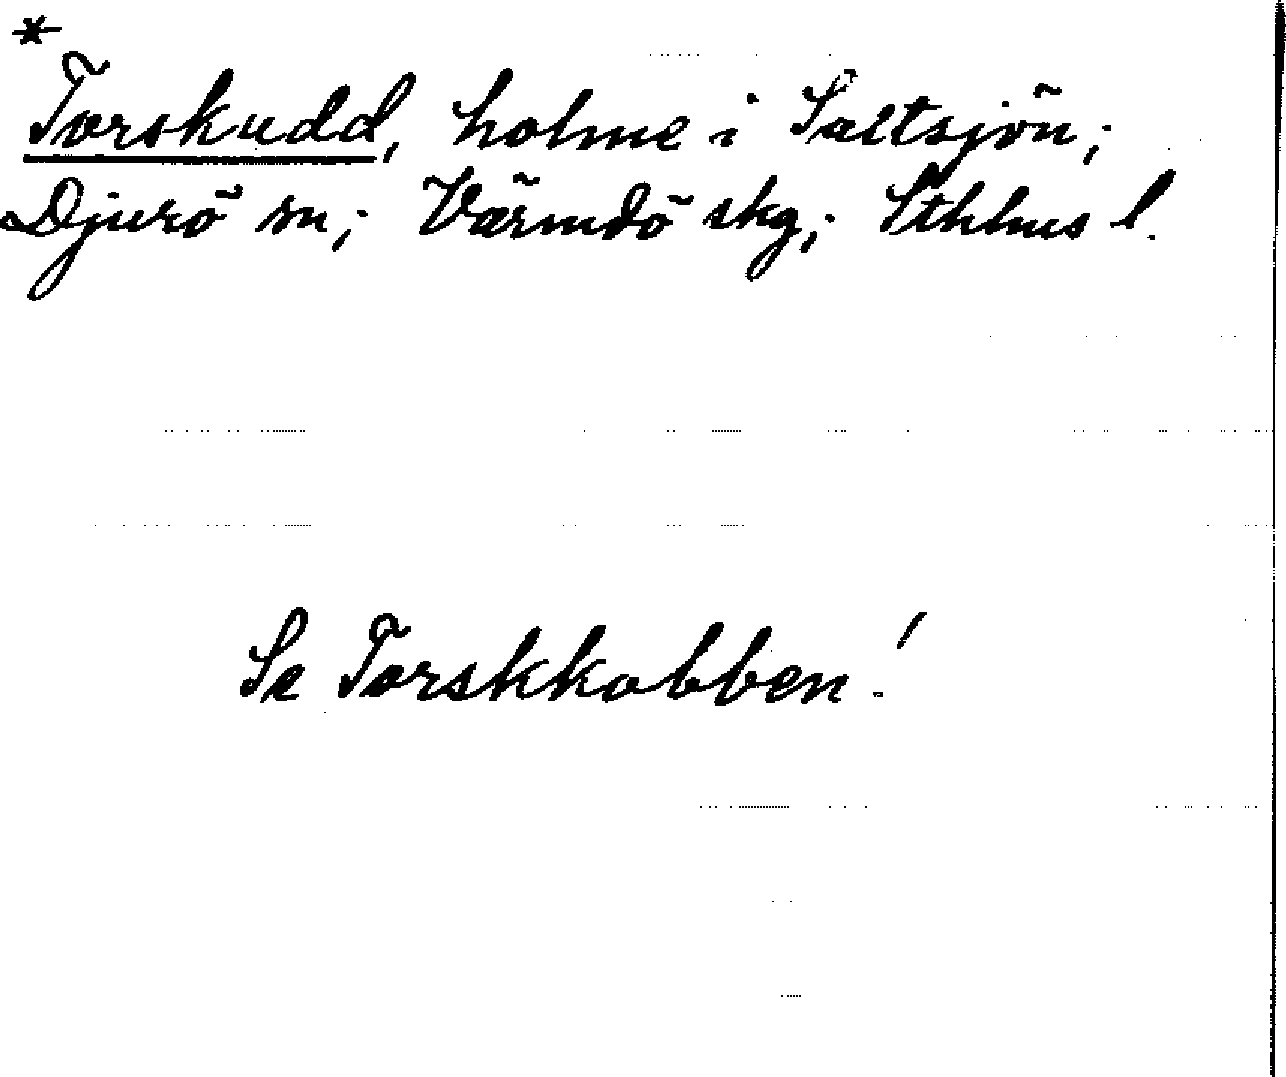 *
Torskudd, holme i Saltsjön;
Djurö sn; Värmdö skg; Sthlms l.
Se Torskkobben!